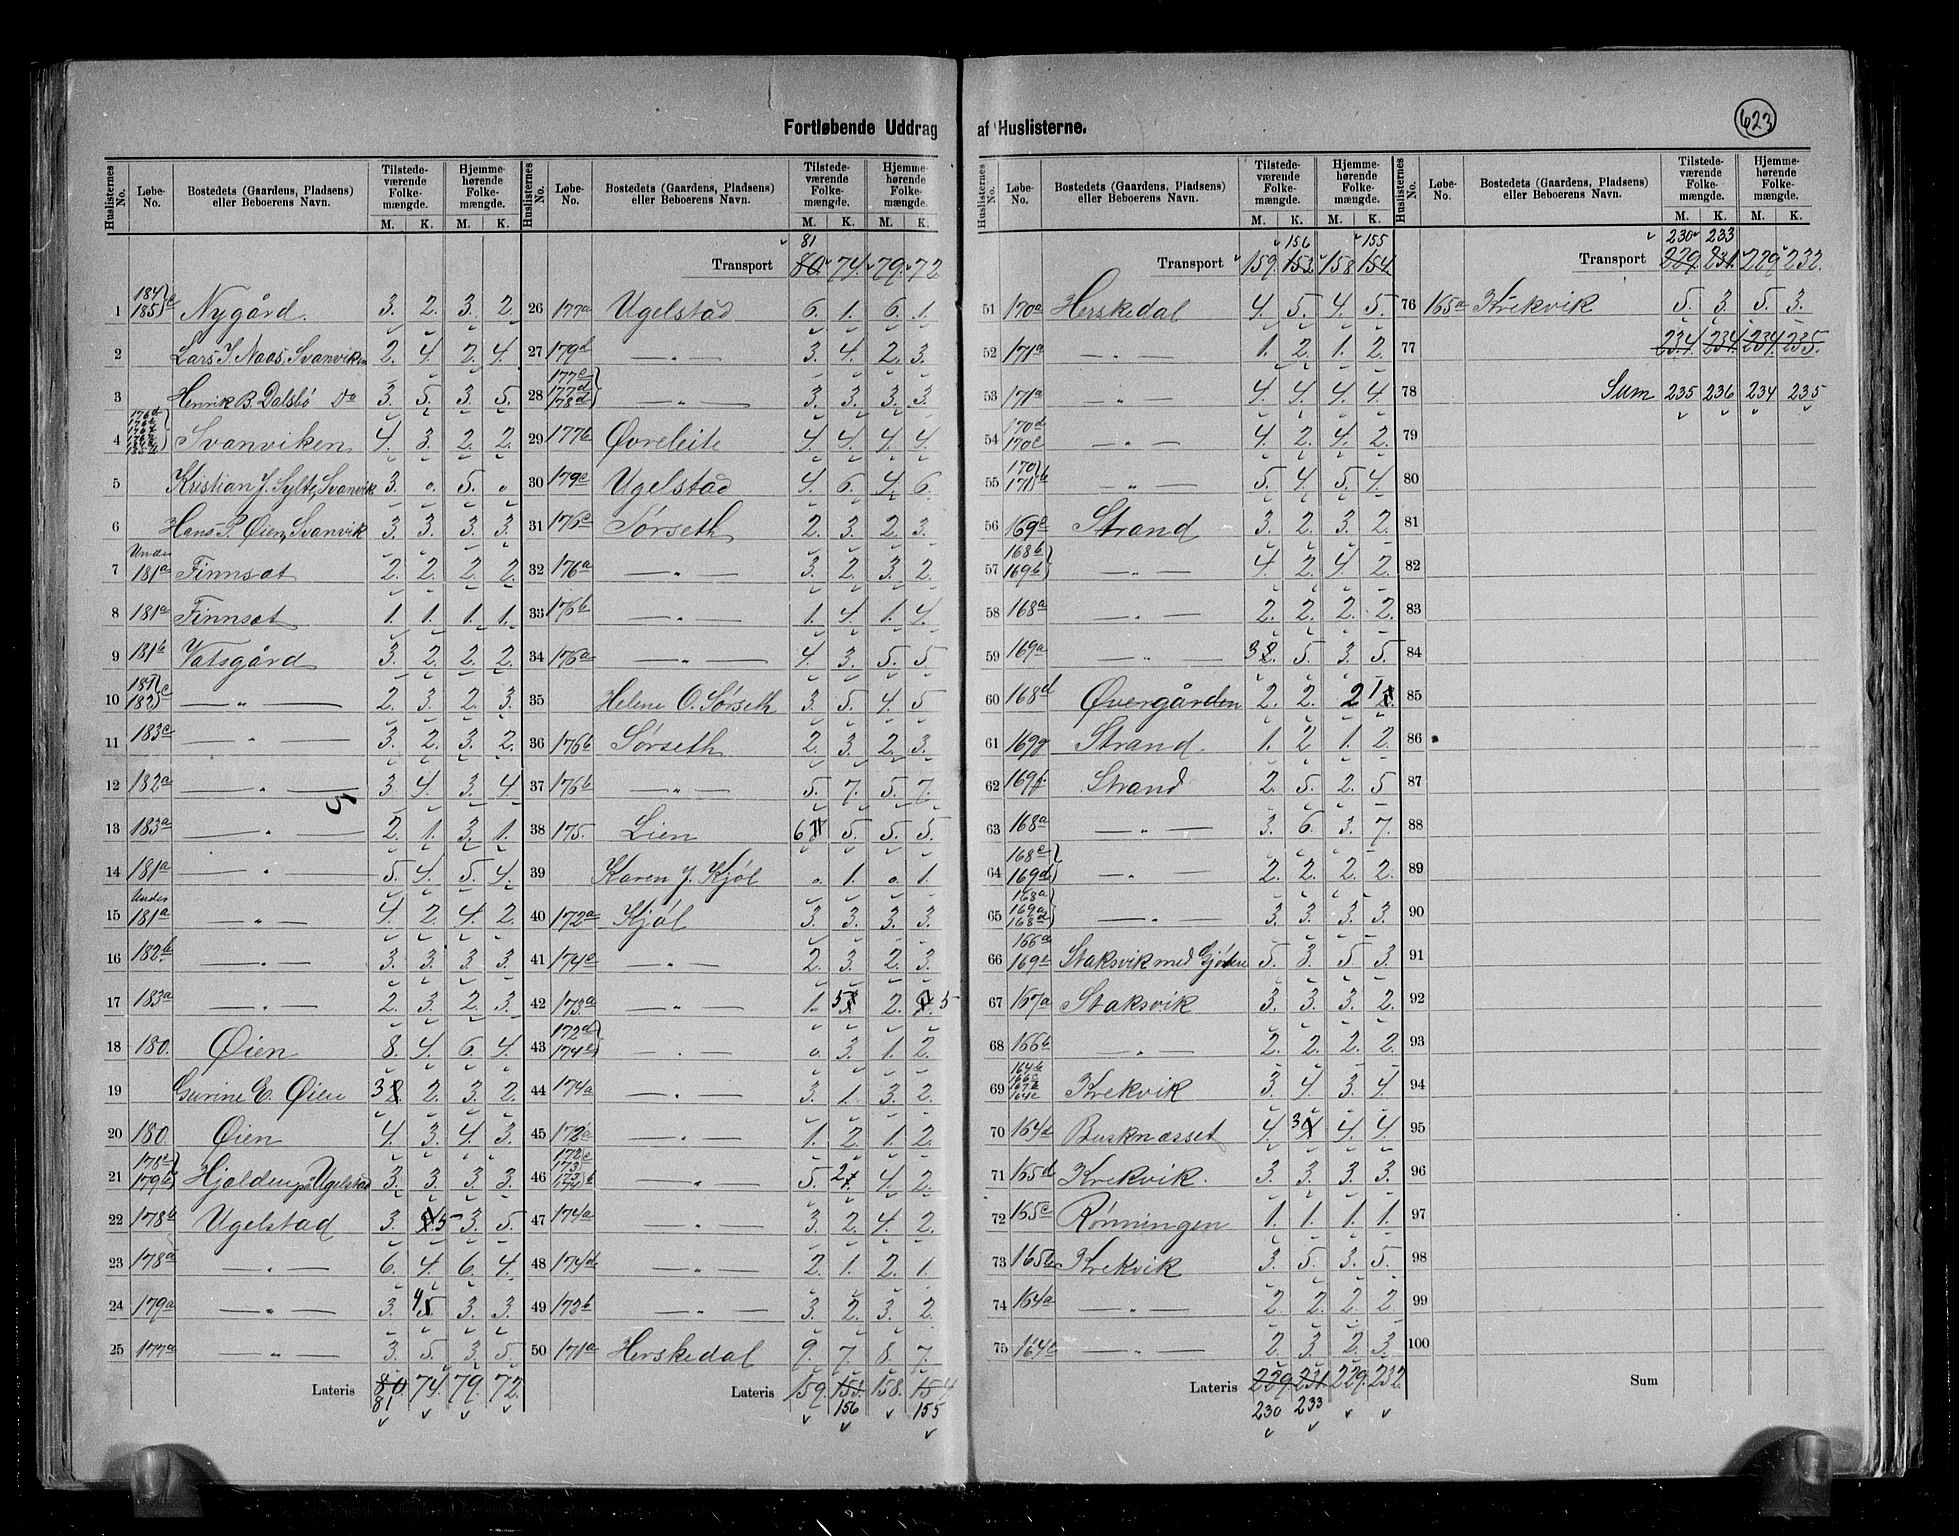 623
Fortløbende Uddrag af Huslisterne.
Huslisternes No. Løbe-No. Bostedets (Gaardens, Pladsens) eller Beboerens Navn. Tilstedeværende Folkemængde. M. K. Hjemmehørende Folkemængde. M. K.
1 184 185 c Nygård. 3. 2. 3. 2.
2 Lars J. Naas, Svanviken 2. 4. 2. 4.
3 Henrik B. Dalsbö Do 3. 5. 3. 5.
4 Svanviken 4. 3. 2. 2.
5 Kristian J. Sylte, Svanvik 3. 0. 5. 0
6 Hans P. Øien, Svanvik 3. 3. 3. 3.
7 Under 181a Finnsæt 2. 2. 2. 2.
8 181a Finnsæt 1. 1. 1. 1.
9 181b Vatsgård 3. 2. 2. 2.
10 181 182 c — " — 2. 3. 2. 3.
11 183c — " — 3. 2. 3. 2.
12 182a — " — 3. 4. 3. 4.
13 183a — " — 2. 1. 3. 1.
14 181a — " — 5. 4. 5. 4.
15 Under 181a — " — 4. 2. 4. 2.
16 182b — " — 3. 3. 3. 3.
17 183a — " — 2. 3. 2. 3.
18 180. Øien 8. 4. 6. 4.
19 Gurine E. Øien 3 2. 2. 3. 2.
20 180. Øien 4. 3. 4. 3.
21 178c 179b Hjolden på Ugelstad 3. 3. 3. 3.
22 178b Ugelstad 3. 5 3. 5.
23 178a — " — 6. 4. 6. 4.
24 179a — " — 3. 4 5. 3. 3.
25 177a — " — 3. 5. 3. 5.
Lateris 80. 74. 79. 72.
81
Huslisternes No. Løbe-No. Bostedets (Gaardens, Pladsens) eller Beboerens Navn. Tilstedeværende Folkemængde. M. K. Hjemmehørende Folkemængde. M. K.
81
Transport 80. 74. 79. 72
26 177a Ugelstad 6. 1. 6. 1.
27 179d — " — 3. 4. 2. 3.
28 177c 177d 178d — " — 3. 3. 3. 3.
29 177b Øvreleite 4. 4. 4. 4.
30 179c Ugelstad 4. 6. 4. 6.
31 176c Sörseth 2. 3. 2. 3.
32 176a — " — 3. 2. 3. 2.
33 176b — " — 1. 4. 1. 4.
34 176a — " — 4. 3. 5. 5.
35 Helene O. Sörseth 3. 5. 4. 5
36 176b Sörseth 2. 3. 2. 3.
37 176b — " — 5. 7. 5. 7.
38 175. Lien 6 5. 5. 5.
39 Karen J. Kjöl 0. 1. 0. 1.
40 172a Kjöl 3. 3. 3. 3.
41 174c — " — 2. 3. 2. 3.
42 173a — " — 1. 5 2. 5
43 172d 174e — " — 0. 3. 1. 2.
44 174a — " — 3. 1. 3. 2.
45 172a — " — 1. 2. 1. 2.
46 — " — 5. 2 4. 2.
47 174a — " — 3. 2. 4. 2.
48 174d — " — 2. 1. 2. 1.
49 173b — " — 3. 2. 3. 2.
50 171a Herskedal 9. 7. 8. 7.
Lateris 159. 153. 158. 154.
156 155
Huslisternes No. Løbe-No. Bostedets (Gaardens, Pladsens) eller Beboerens Navn. Tilstedeværende Folkemængde. M. K. Hjemmehørende Folkemængde. M. K.
156 155
Transport 159. 153. 158. 154.
51 170a Herskedal 4. 5. 4. 5.
52 171a — " — 1. 2. 1. 2.
53 171a — " — 4. 4. 4. 4.
54 170d 170c — " — 4. 2. 4. 2.
55 170 171 b — " — 5. 4. 5. 4.
56 169c Strand 3. 2. 3. 2.
57 168b 169b — " — 4. 2. 4. 2.
58 168a — " — 2. 2. 2. 2.
59 169a — " — 3 2. 5. 3. 5.
60 168d Øvergården 2. 2. 2 1
61 169g Strand. 1. 2 1. 2.
62 169f Strand 2. 5. 2. 5
63 168a — " — 3. 6. 3. 7.
64 168c 169d — " — 2. 2. 2. 2.
65 168a 169a 168d — " — 3. 3. 3. 3.
66 166a 169e Staksvik med 5. 3. 5 3.
67 167a Staksvik 3. 3. 3. 2.
68 166b — " — 2. 2. 2. 2.
69 164b 166c 167b 164c Krekvik 3. 4. 3. 4.
70 164d Busknæsset 4. 3 4. 4.
71 165d Krekvik. 3. 3. 3. 3.
72 165c Rönningen 1. 1. 1. 1.
73 165b Krekvik 3. 5. 3. 5.
74 164a — " — 2. 2. 2. 2
75 164c — " — 2. 3. 2. 3.
Lateris 229. 231. 229. 232.
230 233
Huslisternes No. Løbe-No. Bostedets (Gaardens, Pladsens) eller Beboerens Navn. Tilstedeværende Folkemængde. M. K. Hjemmehørende Folkemængde. M. K.
230 233
Transport 229. 231. 229. 232.
76 165a Krekvik 5. 3. 5. 3.
77 234. 234. 234. 235.
78 Sum 235 236 234 235
79
80
81
82
83
84
85
86
87
88
89
90
91
92
93
94
95
96
97
98
99
100
Sum